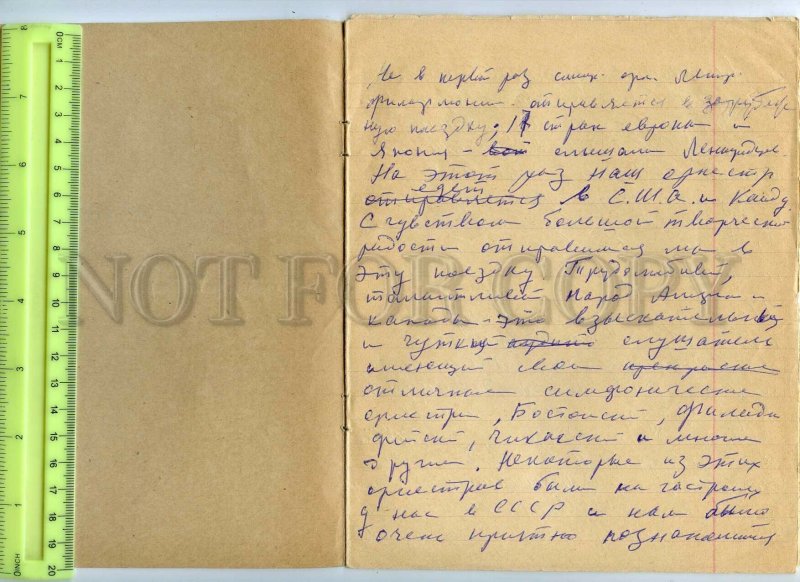 Не в первый раз симф. орк. Ленин.
филармонии отправляется в зарубеж
ную поездку; 17 стран европы и
Япония - слышали Ленинградцев.
На этот раз наш оркестр
едет
отправляется в С.Ш.А. и Канаду
С чувством большой творческой
радости отправляемся мы в
эту поездку Трудолюбивый,
талантливый народ Америки и
Канады - это взыскательный
и чуткий слушатель
имеющий свои прекрасные
отличные симфонические
оркестры, Бостонский, Филадель
фийский, Чикагский и многие
другие. Некоторые из этих
оркестров были на гастролях
у нас в СССР и нам было
очень приятно познакомится
NOT FOR COPY
0СМ 1 2 3 4 5 6 7 8 9 10 11 12 13 14 15 16 17 18 19 20
INCH 1 2 3 4 5 6 7 8